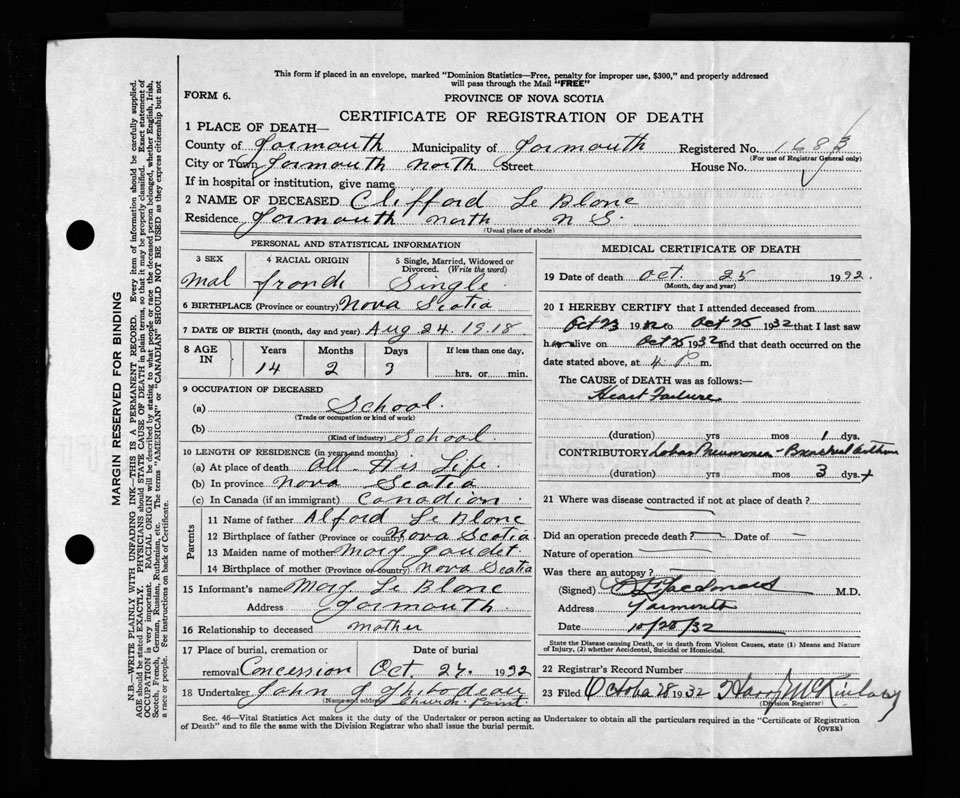 This form if placed in an envelope, marked "Dominion Statistics—Free, penalty for improper use, $300," and properly addressed
will pass through the Mail "FREE"
FORM 6.
PROVINCE OF NOVA SCOTIA
CERTIFICATE OF REGISTRATION OF DEATH
1 PLACE OF DEATH—
County of Yarmouth Municipality of Yarmouth Registered No. 168
(For use of Registrar General only)
City or Town Yarmouth North Street House No.
If in hospital or institution, give name
2 NAME OF DECEASED Clifford Le Blanc
Residence Yarmouth North N S.
(Usual place of abode)
PERSONAL AND STATISTICAL INFORMATION
3 SEX 4 RACIAL ORIGIN 5 Single, Married, Widowed or
Divorced. (Write the word)
Mal Single
6 BIRTHPLACE (Province or country) Nova Scotia
7 DATE OF BIRTH (month, day and year) Aug 24. 1918.
8 AGE IN Years Months Days If less than one day,
14 2 hrs. or min.
9 OCCUPATION OF DECEASED
(a) School.
(Trade or occupation or kind of work)
(b) School.
(Kind of industry)
10 LENGTH OF RESIDENCE (in years and months)
(a) At place of death All His Life.
(b) In province Nova Scotia
(c) In Canada (if an immigrant) Canadion.
Parents
11 Name of father Alford Le Blanc
12 Birthplace of father (Province or country) Nova Scotia
13 Maiden name of mother Mary Gaudet.
14 Birthplace of mother (Province or country) Nova Scotia
15 Informant's name Mary Le Blanc
Address Yarmouth.
16 Relationship to deceased mother
17 Place of burial, cremation or Date of burial
removal Concession Oct. 27. 1932
18 Undertaker John J Thibodeau
(Name and address) Church Point.
MEDICAL CERTIFICATE OF DEATH
19 Date of death Oct. 25 1932.
(Month, day and year)
20 I HEREBY CERTIFY that I attended deceased from
Oct 23 1932 to Oct 25 1932 that I last saw
h alive on Oct 25 1932 and that death occurred on the
date stated above, at 4 P m.
The CAUSE of DEATH was as follows:—
Heart Failure
(duration) yrs mos 1 dys.
CONTRIBUTORY Lobar Pneumonia - Bronchial Asthma
(duration) yrs mos 3 dys. +
21 Where was disease contracted if not at place of death?
Did an operation precede death? — Date of —
Nature of operation
Was there an autopsy?
(Signed) Macdonald M.D.
Address Yarmouth
Date 10/25/32
State the Disease causing Death, or in deaths from Violent Causes, state (1) Means and Nature
of Injury, (2) whether Accidental, Suicidal or Homicidal.
22 Registrar's Record Number
23 Filed October 28 1932 Harry McKinlay
(Division Registrar)
Sec. 46—Vital Statistics Act makes it the duty of the Undertaker or person acting as Undertaker to obtain all the particulars required in the "Certificate of Registration
of Death" and to file the same with the Division Registrar who shall issue the burial permit.
(OVER)
MARGIN RESERVED FOR BINDING
N.B.—WRITE PLAINLY WITH UNFADING INK—THIS IS A PERMANENT RECORD. Every item of information should be carefully supplied.
AGE should be stated EXACTLY. PHYSICIANS should STATE CAUSE OF DEATH in plain terms, so that it may be properly classified. Exact statement of
OCCUPATION is very important. RACIAL ORIGIN will be described by stating to what people or race the deceased person belonged, whether English, Irish,
Scotch, French, German, Russian, Ruthenian, etc. The terms "AMERICAN" or "CANADIAN" SHOULD NOT BE USED as they express citizenship but not
a race or people. See instructions on back of Certificate.